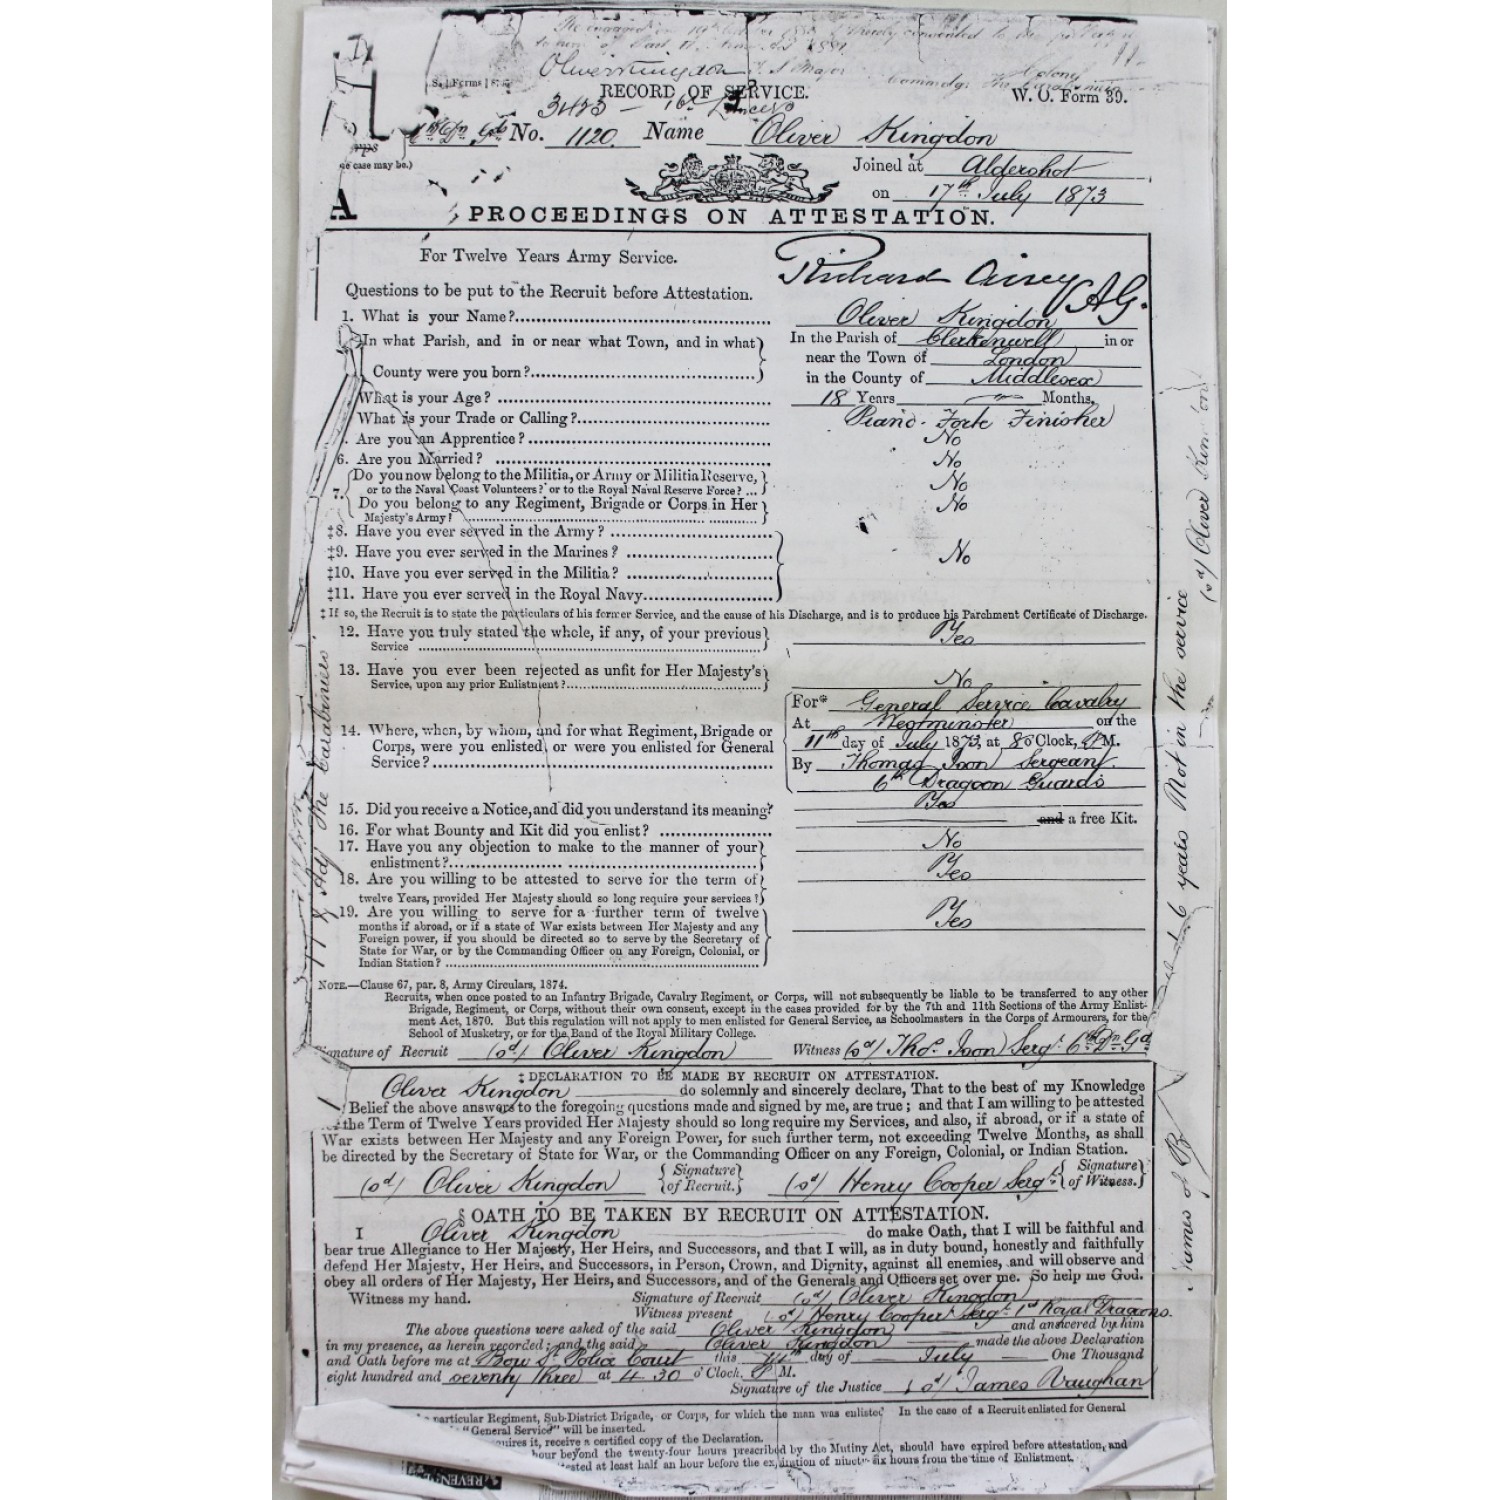 Oliver Kingdon
RECORD OF SERVICE.
W. O. Form 39.
3473 — 16th Lancers
6th Dn Gds No. 1120 Name Oliver Kingdon
(as case may be.)
Joined at Aldershot
on 17th July 1873
A PROCEEDINGS ON ATTESTATION.
For Twelve Years Army Service.
Richard Airey AG.
Questions to be put to the Recruit before Attestation.
1. What is your Name? Oliver Kingdon
In what Parish, and in or near what Town, and in what County were you born?
In the Parish of Clerkenwell in or
near the Town of London
in the County of Middlesex
What is your Age? 18 Years — Months,
What is your Trade or Calling? Piano-Forte Finisher
Are you an Apprentice? No
6. Are you Married? No
7. Do you now belong to the Militia, or Army or Militia Reserve, No
or to the Naval Coast Volunteers? or to the Royal Naval Reserve Force? ...
Do you belong to any Regiment, Brigade or Corps in Her No
Majesty's Army?
‡8. Have you ever served in the Army?
‡9. Have you ever served in the Marines? No
‡10. Have you ever served in the Militia?
‡11. Have you ever served in the Royal Navy
‡ If so, the Recruit is to state the particulars of his former Service, and the cause of his Discharge, and is to produce his Parchment Certificate of Discharge.
12. Have you truly stated the whole, if any, of your previous Yes
Service
13. Have you ever been rejected as unfit for Her Majesty's
Service, upon any prior Enlistment? No
14. Where, when, by whom, and for what Regiment, Brigade or
Corps, were you enlisted, or were you enlisted for General
Service?
For* General Service Cavalry
At Westminster on the
11th day of July 1873, at 8 o'Clock, P.M.
By Thomas Ison Sergeant
6th Dragoon Guards
15. Did you receive a Notice, and did you understand its meaning? Yes
16. For what Bounty and Kit did you enlist? and a free Kit.
17. Have you any objection to make to the manner of your No
enlistment?
18. Are you willing to be attested to serve for the term of Yes
twelve Years, provided Her Majesty should so long require your services?
19. Are you willing to serve for a further term of twelve Yes
months if abroad, or if a state of War exists between Her Majesty and any
Foreign power, if you should be directed so to serve by the Secretary of
State for War, or by the Commanding Officer on any Foreign, Colonial, or
Indian Station?
NOTE.—Clause 67, par. 8, Army Circulars, 1874.
Recruits, when once posted to an Infantry Brigade, Cavalry Regiment, or Corps, will not subsequently be liable to be transferred to any other
Brigade, Regiment, or Corps, without their own consent, except in the cases provided for by the 7th and 11th Sections of the Army Enlist-
ment Act, 1870. But this regulation will not apply to men enlisted for General Service, as Schoolmasters in the Corps of Armourers, for the
School of Musketry, or for the Band of the Royal Military College.
Signature of Recruit (sd) Oliver Kingdon Witness (sd) Thos. Ison Sergt. 6th Dn Gds
‡ DECLARATION TO BE MADE BY RECRUIT ON ATTESTATION.
Oliver Kingdon do solemnly and sincerely declare, That to the best of my Knowledge
Belief the above answers to the foregoing questions made and signed by me, are true; and that I am willing to be attested
the Term of Twelve Years provided Her Majesty should so long require my Services, and also, if abroad, or if a state of
War exists between Her Majesty and any Foreign Power, for such further term, not exceeding Twelve Months, as shall
be directed by the Secretary of State for War, or the Commanding Officer on any Foreign, Colonial, or Indian Station.
(sd) Oliver Kingdon Signature of Recruit. (sd) Henry Cooper Sergt. Signature of Witness.
§ OATH TO BE TAKEN BY RECRUIT ON ATTESTATION.
I Oliver Kingdon do make Oath, that I will be faithful and
bear true Allegiance to Her Majesty, Her Heirs, and Successors, and that I will, as in duty bound, honestly and faithfully
defend Her Majesty, Her Heirs, and Successors, in Person, Crown, and Dignity, against all enemies, and will observe and
obey all orders of Her Majesty, Her Heirs, and Successors, and of the Generals and Officers set over me. So help me God.
Witness my hand. Signature of Recruit (sd) Oliver Kingdon
Witness present (sd) Henry Cooper Sergt. 1st Royal Dragoons.
The above questions were asked of the said Oliver Kingdon and answered by him
in my presence, as herein recorded; and the said Oliver Kingdon made the above Declaration
and Oath before me at Bow St. Police Court this 14th day of July One Thousand
eight hundred and seventy three at 4 30 o'Clock, P M.
Signature of the Justice (sd) James Vaughan
particular Regiment, Sub-District Brigade, or Corps, for which the man was enlisted In the case of a Recruit enlisted for General
"General Service" will be inserted.
quires it, receive a certified copy of the Declaration.
hour beyond the twenty-four hours prescribed by the Mutiny Act, should have expired before attestation, and
ested at least half an hour before the expiration of ninety-six hours from the time of Enlistment.
6 years Not in the service
(sd) Oliver Kingdon
Adj The Carabiniers
REVEN